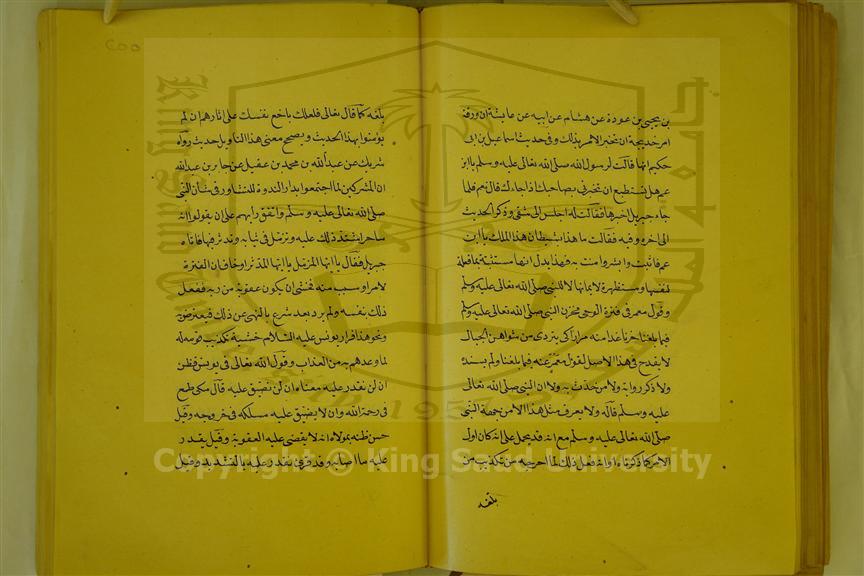 بن يحيى بن عروة عن هشام عن ابيه عن عايشة ان ورقة
امر خديجة ان تخبر الامر بذلك وفى حديث اسماعيل بن ابى
حكيم انها قالت لرسول الله صلى الله تعالى عليه وسلم يا ابن
عم هل تستطيع ان تخبرنى بصاحبك اذا جاءك قال نعم فلما
جاء جبريل اخبرها فقالت له اجلس الى شقى وذكر الحديث
الى اخره وفيه فقالت ما هذا بشيطان هذا الملك يا ابن
عم فاثبت وابشر وامنت به فهذا يدل انها مستثبتة بما فعلته
لنفسها ومستظهرة لايمانها لا للنبى صلى الله تعالى عليه وسلم
وقول معمر فى فترة الوحى فحزن النبى صلى الله تعالى عليه وسلم
فيما بلغنا حزنا غدا منه مرارا كى يتردى من شواهق الجبال
لا يقدح فى هذا الاصل لقول معمر عنه فيما بلغنا ولم يسنده
ولا ذكر رواته ولا من حدث به ولا ان النبى صلى الله تعالى
عليه وسلم قاله ولا يعرف مثل هذا الا من جهة النبى
صلى الله تعالى عليه وسلم مع انه قد يحمل على انه كان اول
الامر كما ذكرناه او انه فعل ذلك لما احرجه من تكذيب من
بلغه
بلغه كما قال تعالى فلعلك باخع نفسك على اثارهم ان لم
يؤمنوا بهذا الحديث ويصحح معنى هذا التاويل حديث رواه
شريك عن عبد الله بن محمد بن عقيل عن جابر بن عبد الله
ان المشركين لما اجتمعوا بدار الندوة للتشاور فى شأن النبى
صلى الله تعالى عليه وسلم واتفق رايهم على ان يقولوا انه
ساحر اشتد ذلك عليه وتزمل فى ثيابه وتدثر فيها فاتاه
جبريل فقال يا ايها المزمل يا ايها المدثر او خاف ان الفترة
لامر او سبب منه فخشى ان يكون عقوبة من ربه ففعل
ذلك بنفسه ولم يرد بعد شرع بالنهى عن ذلك فيعترض به
ونحو هذا فرار يونس عليه السلام خشية تكذيب قومه له
لما وعدهم به من العذاب وقول الله تعالى فى يونس فظن
ان لن نقدر عليه معناه ان لن نضيق عليه قال مكى طمع
فى رحمة الله وان لا يضيق عليه مسلكه فى خروجه وقيل
حسن ظنه بمولاه انه لا يقضى عليه العقوبة وقيل يقدر
عليه ما اصابه وقد قرئ نقدر عليه بالتشديد وقيل
Copyright © King Saud University
جامعة الملك سعود
1957